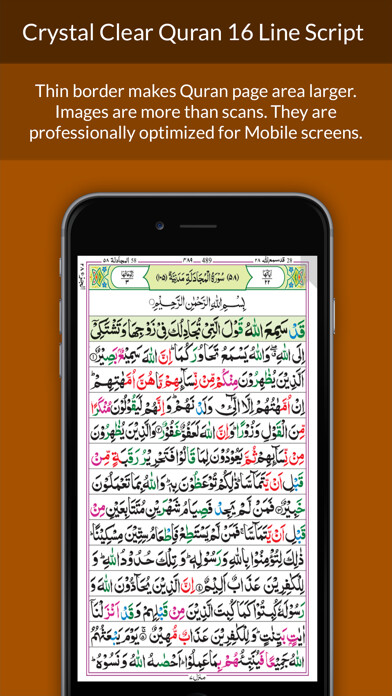 Crystal Clear Quran 16 Line Script
Thin border makes Quran page area larger.
Images are more than scans. They are
professionally optimized for Mobile screens.
المجادلة ٥٨ 58 ٤٨٩ 489 قد سمع الله ٢٨ 28
ركوعاتها ٣ (٥٨) سُوْرَةُ الْمُجَادَلَةِ مَدَنِيَّةٌ (١٠٥) اٰيَاتُهَا ٢٢
بِسْمِ اللّٰهِ الرَّحْمٰنِ الرَّحِيْمِ
قَدْ سَمِعَ اللّٰهُ قَوْلَ الَّتِيْ تُجَادِلُكَ فِيْ زَوْجِهَا وَتَشْتَكِيْٓ
اِلَى اللّٰهِ ۖ وَاللّٰهُ يَسْمَعُ تَحَاوُرَكُمَا ؕ اِنَّ اللّٰهَ سَمِيْعٌۢ بَصِيْرٌ ۝۱
اَلَّذِيْنَ يُظٰهِرُوْنَ مِنْكُمْ مِّنْ نِّسَآئِهِمْ مَّا هُنَّ اُمَّهٰتِهِمْ ؕ
اِنْ اُمَّهٰتُهُمْ اِلَّا الّٰٓـِٔيْ وَلَدْنَهُمْ ؕ وَاِنَّهُمْ لَيَقُوْلُوْنَ مُنْكَرًا
مِّنَ الْقَوْلِ وَزُوْرًا ؕ وَاِنَّ اللّٰهَ لَعَفُوٌّ غَفُوْرٌ ۝۲ وَالَّذِيْنَ يُظٰهِرُوْنَ
مِنْ نِّسَآئِهِمْ ثُمَّ يَعُوْدُوْنَ لِمَا قَالُوْا فَتَحْرِيْرُ رَقَبَةٍ مِّنْ
قَبْلِ اَنْ يَّتَمَآسَّا ؕ ذٰلِكُمْ تُوْعَظُوْنَ بِهٖ ؕ وَاللّٰهُ بِمَا تَعْمَلُوْنَ
خَبِيْرٌ ۝۳ فَمَنْ لَّمْ يَجِدْ فَصِيَامُ شَهْرَيْنِ مُتَتَابِعَيْنِ مِنْ
قَبْلِ اَنْ يَّتَمَآسَّا ۚ فَمَنْ لَّمْ يَسْتَطِعْ فَاِطْعَامُ سِتِّيْنَ مِسْكِيْنًا ؕ
ذٰلِكَ لِتُؤْمِنُوْا بِاللّٰهِ وَرَسُوْلِهٖ ؕ وَتِلْكَ حُدُوْدُ اللّٰهِ ؕ وَ
لِلْكٰفِرِيْنَ عَذَابٌ اَلِيْمٌ ۝۴ اِنَّ الَّذِيْنَ يُحَآدُّوْنَ اللّٰهَ وَ
رَسُوْلَهٗ كُبِتُوْا كَمَا كُبِتَ الَّذِيْنَ مِنْ قَبْلِهِمْ وَقَدْ اَنْزَلْنَآ
اٰيٰتٍۭ بَيِّنٰتٍ ؕ وَلِلْكٰفِرِيْنَ عَذَابٌ مُّهِيْنٌ ۝۵ يَوْمَ يَبْعَثُهُمُ
اللّٰهُ جَمِيْعًا فَيُنَبِّئُهُمْ بِمَا عَمِلُوْا ؕ اَحْصٰىهُ اللّٰهُ وَنَسُوْهُ ؕ
منزل ٧